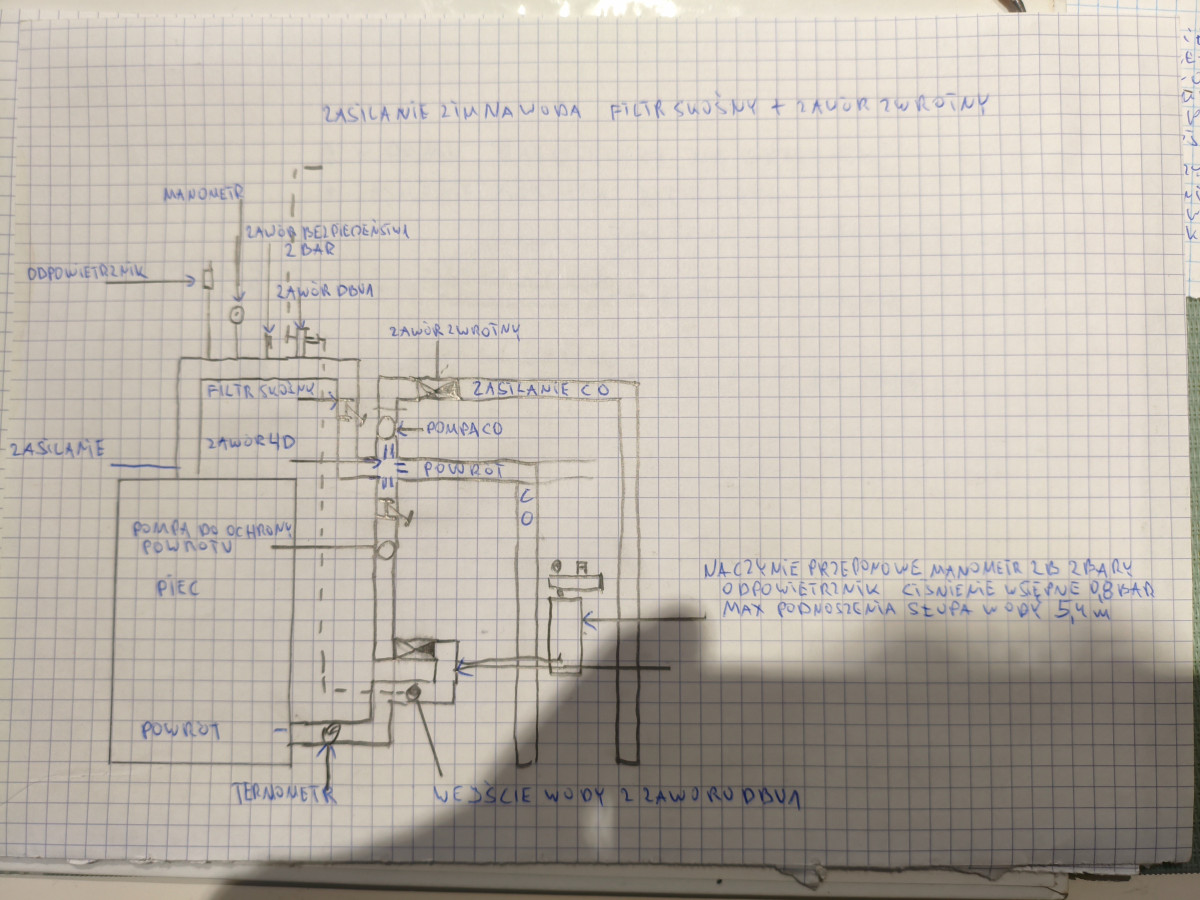 ZASILANIE ZIMNA WODA FILTR SKOŚNY + ZAWÓR ZWROTNY
MANOMETR
ZAWÓR BEZPIECEŃSTWA
2 BAR
ODPOWIETRZNIK
ZAWÓR DBV1
ZAWÓR ZWROTNY
FILTR SKOŚNY
ZASILANIE CO
POMPA CO
ZAWÓR 4D
ZASILANIE
POWRÓT
CO
POMPA DO OCHRONY
POWROTU
PIEC
NACZYNIE PRZEPONOWE MANOMETR ZB 2BARY
ODPOWIETRZNIK CIŚNIENIE WSTĘPNE 0,8 BAR
MAX PODNOSZENIA SŁUPA WODY 5,4 m
POWRÓT
TERMOMETR
WEJŚCIE WODY Z ZAWORU DBV1